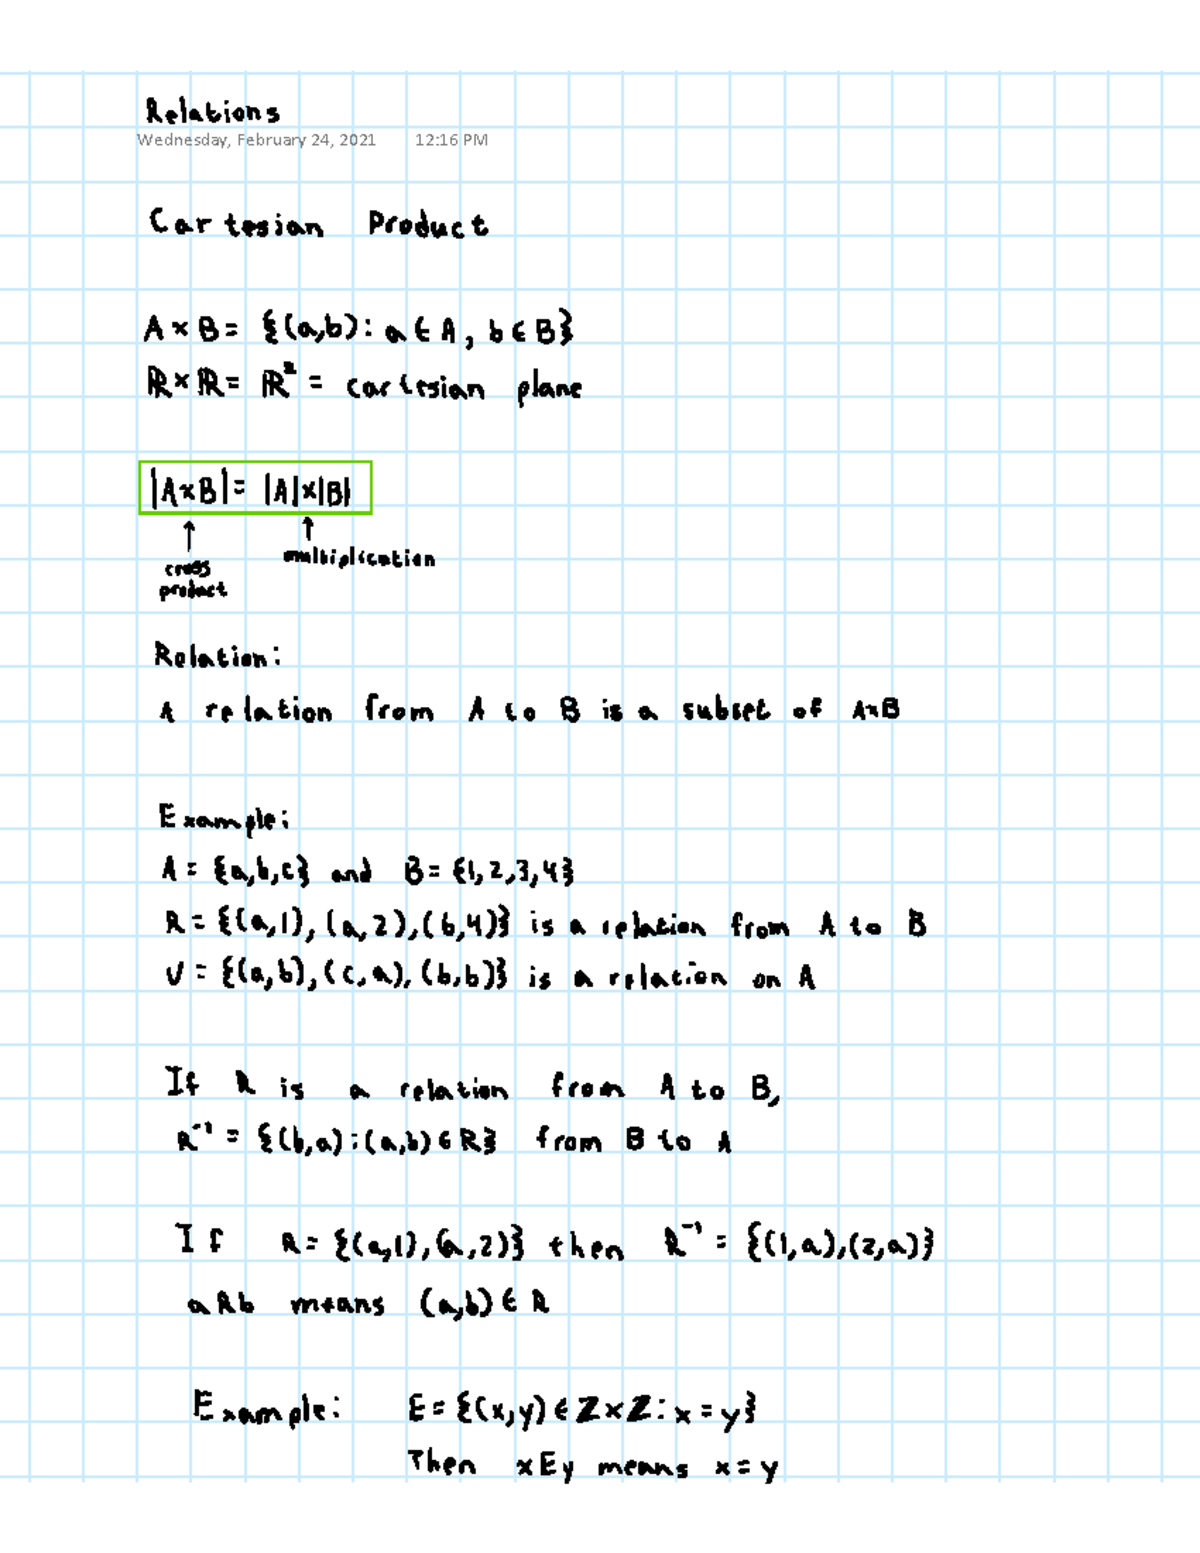 Relations
Wednesday, February 24, 2021 12:16 PM
Cartesian Product
A × B = {(a,b): a ∈ A, b ∈ B}
ℝ × ℝ = ℝ² = cartesian plane
|A×B| = |A|×|B|
↑ ↑
cross multiplication
product
Relation:
A relation from A to B is a subset of A×B
Example:
A = {a,b,c} and B = {1,2,3,4}
R = {(a,1), (a,2), (b,4)} is a relation from A to B
U = {(a,b), (c,a), (b,b)} is a relation on A
If R is a relation from A to B,
R⁻¹ = {(b,a) : (a,b) ∈ R} from B to A
If R = {(a,1), (a,2)} then R⁻¹ = {(1,a),(2,a)}
aRb means (a,b) ∈ R
Example: E = {(x,y) ∈ ℤ×ℤ: x = y}
Then xEy means x = y